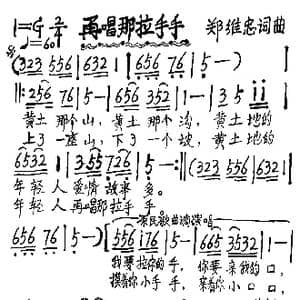 1=G 2/4 再唱那拉手手 郑维忠词曲
♩=60
(323 556 | 632 1 | 656 76 | 5 — )
‖: 256 76 | 5 — | 656 352 | 1 — | 3 5 ii |
黄土那个山，黄土那个沟，黄土地的
上了一座山，下了一个坡，黄土地的
6532 1 | 3.55 726 | 5 — :‖ (323 556 | 632 1 |
年轻人爱情故事多。
年轻人再唱那拉手手
656 76 | 5 — ) | 556 i76 | 5 — | 665 3532 | 1 — |
我要拉你的手，你要亲我的口，
摸着你小手手，亲着你小口口，